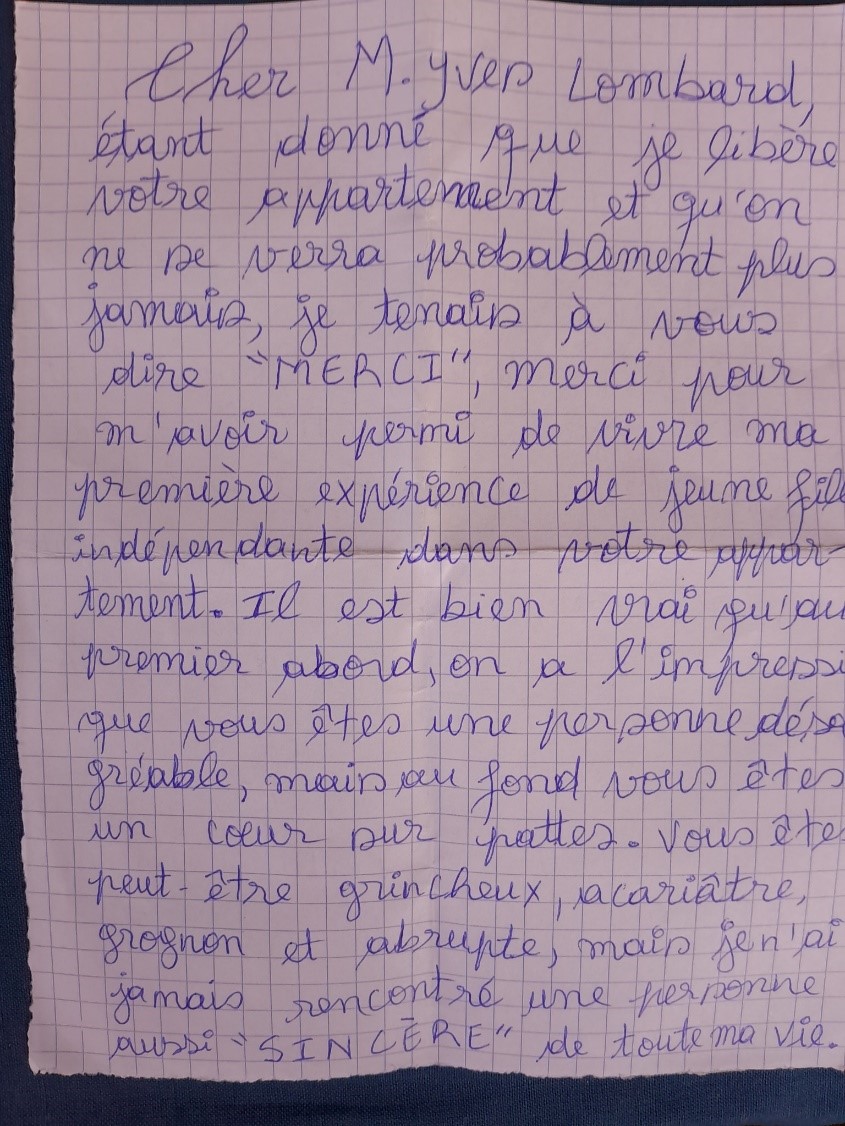 Cher M. Yves Lombard,
étant donné que je libère
votre appartement et qu'on
ne se verra probablement plus
jamais, je tenais à vous
dire "MERCI", merci pour
m'avoir permi de vivre ma
première expérience de jeune fill
indépendante dans votre appar-
tement. Il est bien vrai qu'au
premier abord, on a l'impressi
que vous êtes une personne désa
gréable, mais au fond vous êtes
un cœur sur pattes. Vous ête
peut-être grincheux, acariâtre,
grognon et abrupte, mais je n'ai
jamais rencontré une personne
aussi "SINCÈRE" de toute ma vie.